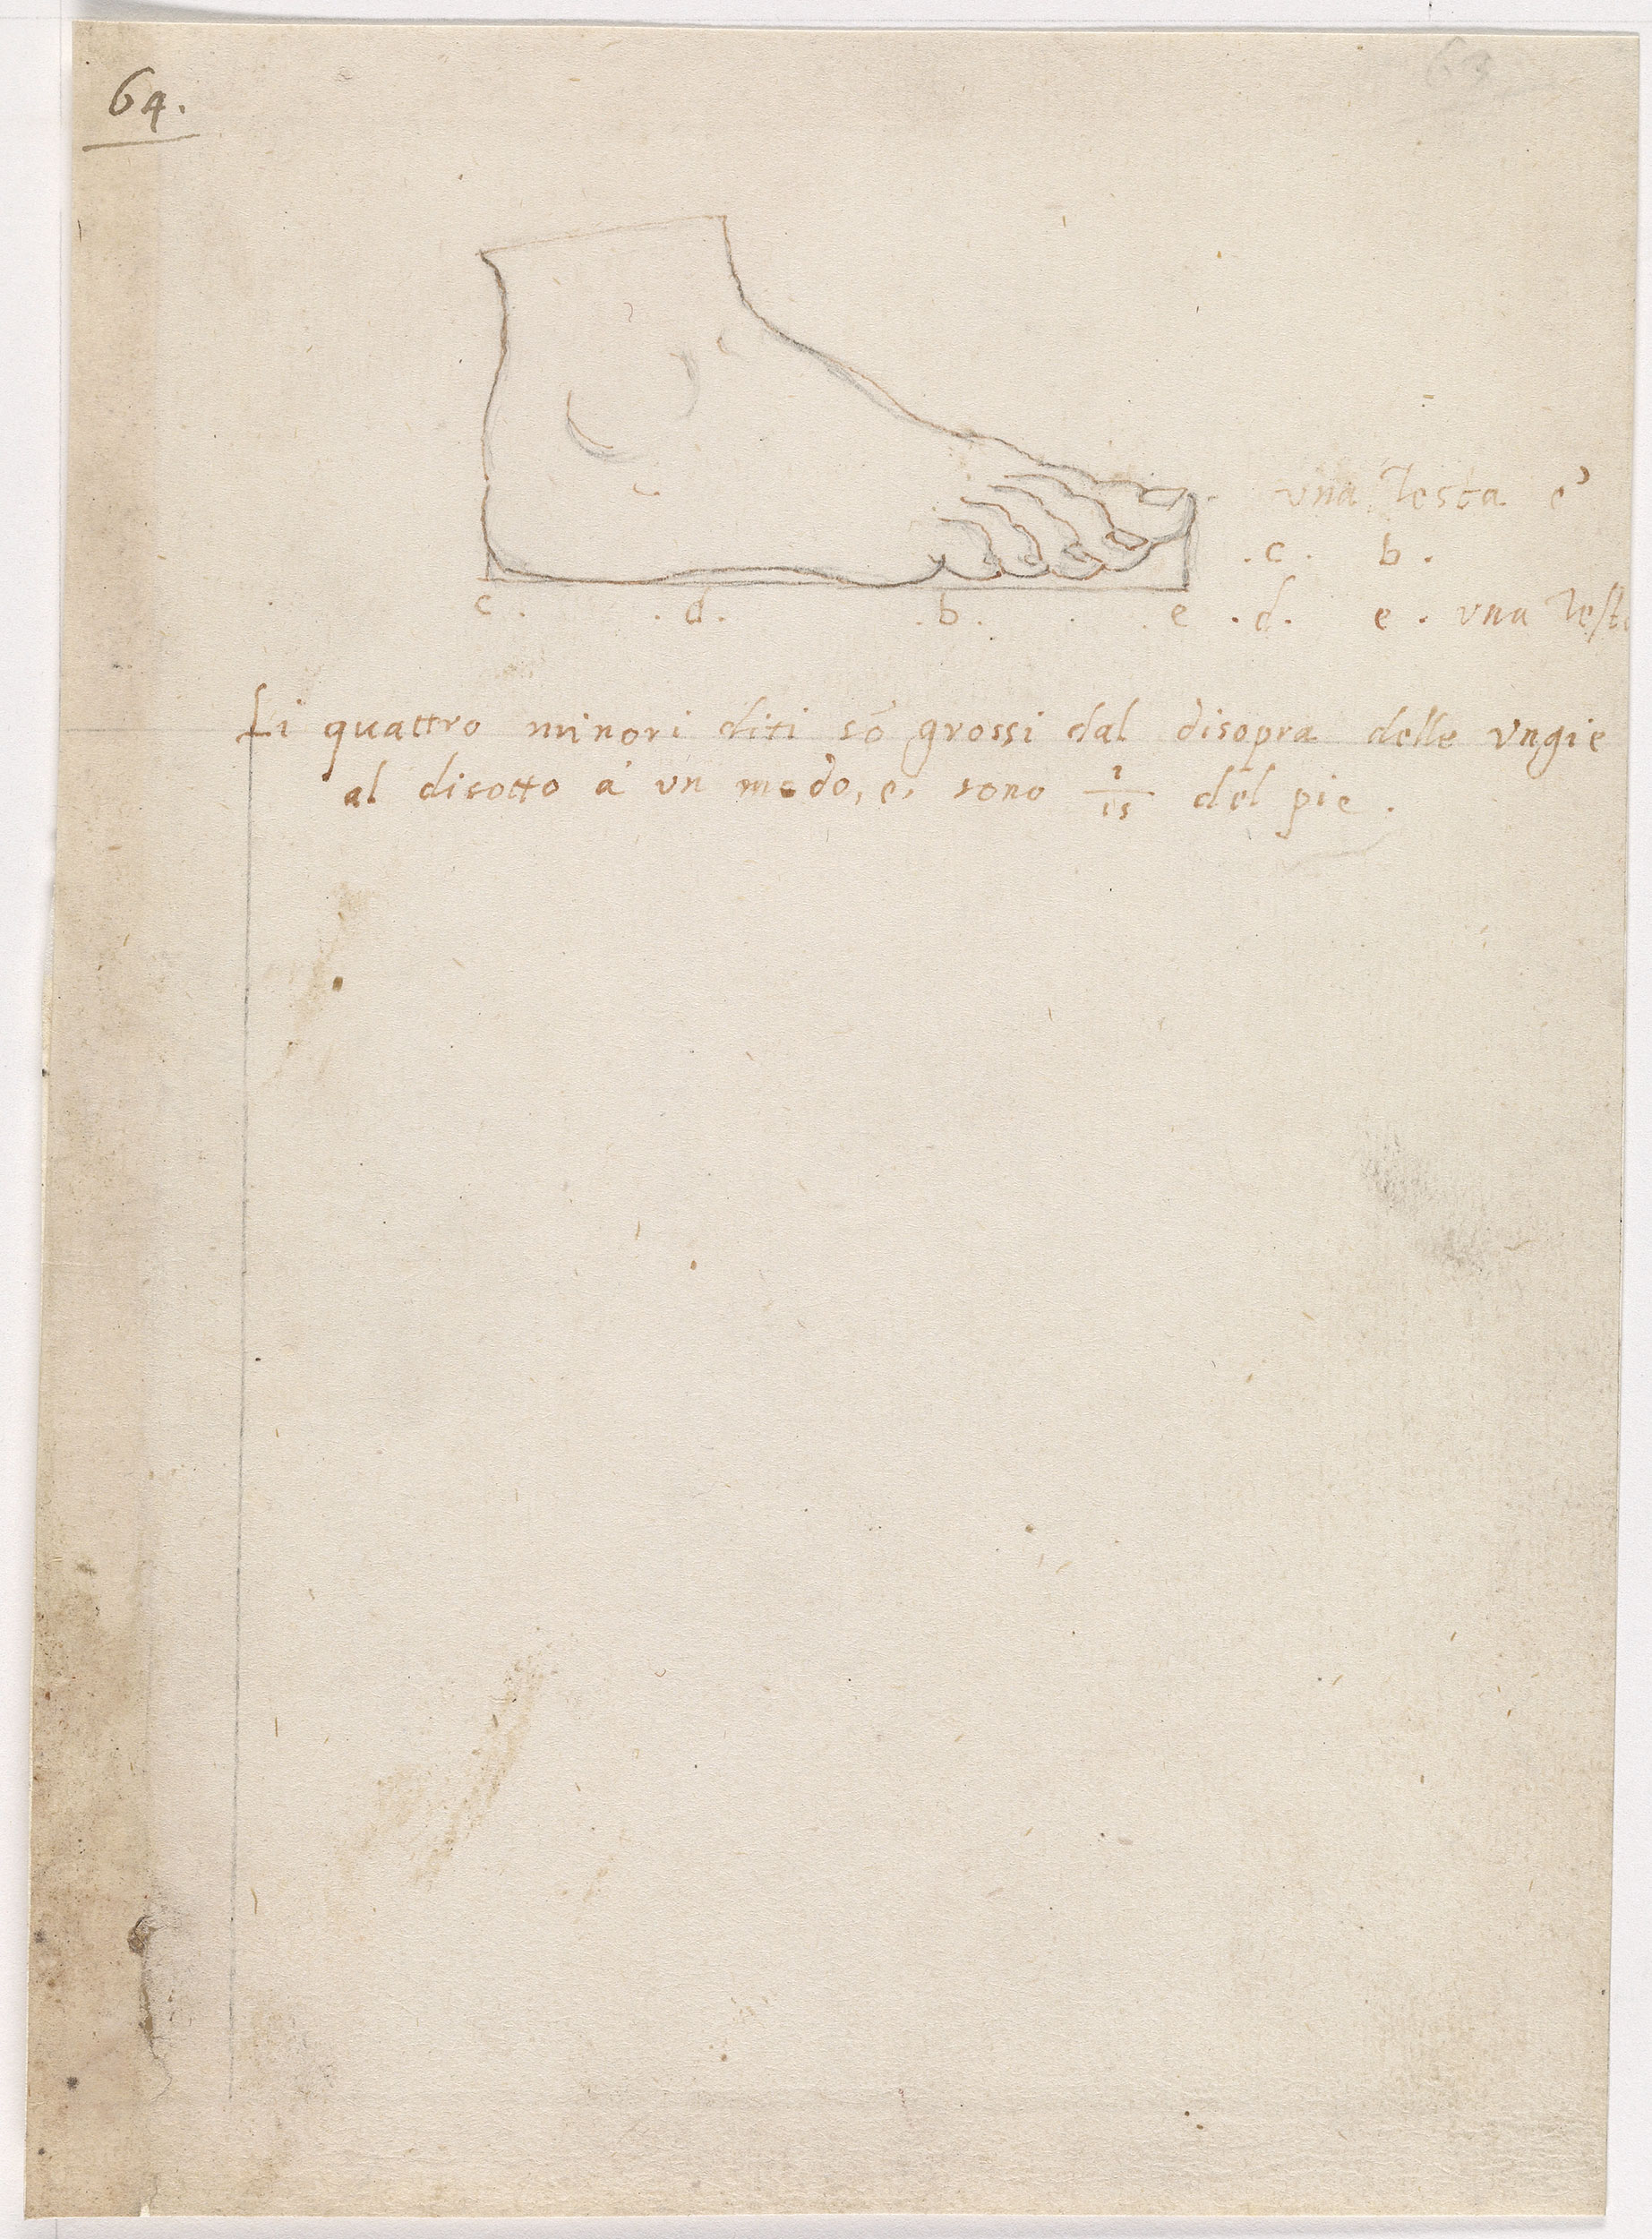 64.
63
una Testa è
.c. b.
c. .d. .b. . .e .d. e. una Testa
Li quattro minori diti sõ grossi dal disopra delle vngie
al disotto à vn modo, e, sono 1/15 del pie.